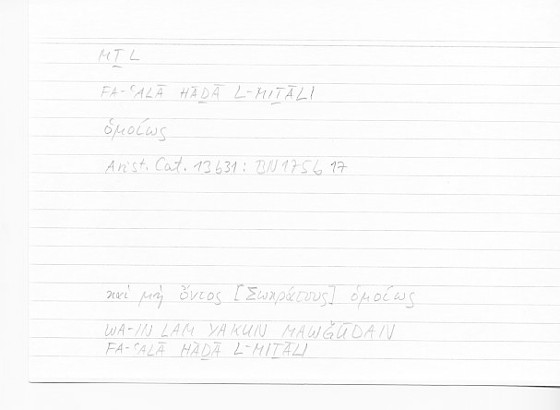 MṮL
FA-ʿALĀ HĀḎĀ L-MIṮĀLI
ὁμοίως
Arist. Cat. 13b31:
καὶ μὴ ὄντος [Σωκράτους] ὁμοίως
WA-IN LAM YAKUN MAWǦŪDAN
FA-ʿALĀ HĀḎĀ L-MIṮĀLI